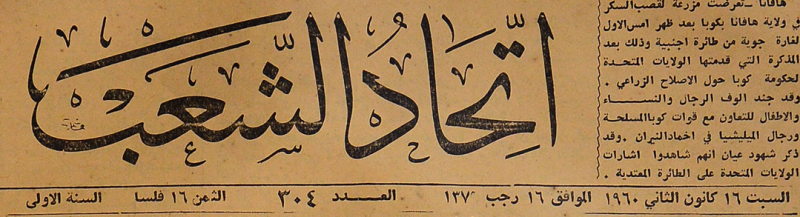 اتحاد الشعب
هافانا - تعرضت مزرعة لقصب السكر
في ولاية هافانا بكوبا بعد ظهر امس الاول
لغارة جوية من طائرة اجنبية وذلك بعد
المذكرة التي قدمتها الولايات المتحدة
لحكومة كوبا حول الاصلاح الزراعي .
وقد جند الوف الرجال والنساء
والاطفال للتعاون مع قوات كوبا المسلحة
ورجال الميليشيا في اخماد النيران . وقد
ذكر شهود عيان انهم شاهدوا اشارات
الولايات المتحدة على الطائرة المعتدية .
السبت ١٦ كانون الثاني ١٩٦٠ الموافق ١٦ رجب ١٣٧ العدد ٣٠٤ الثمن ١٦ فلسا السنة الاولى